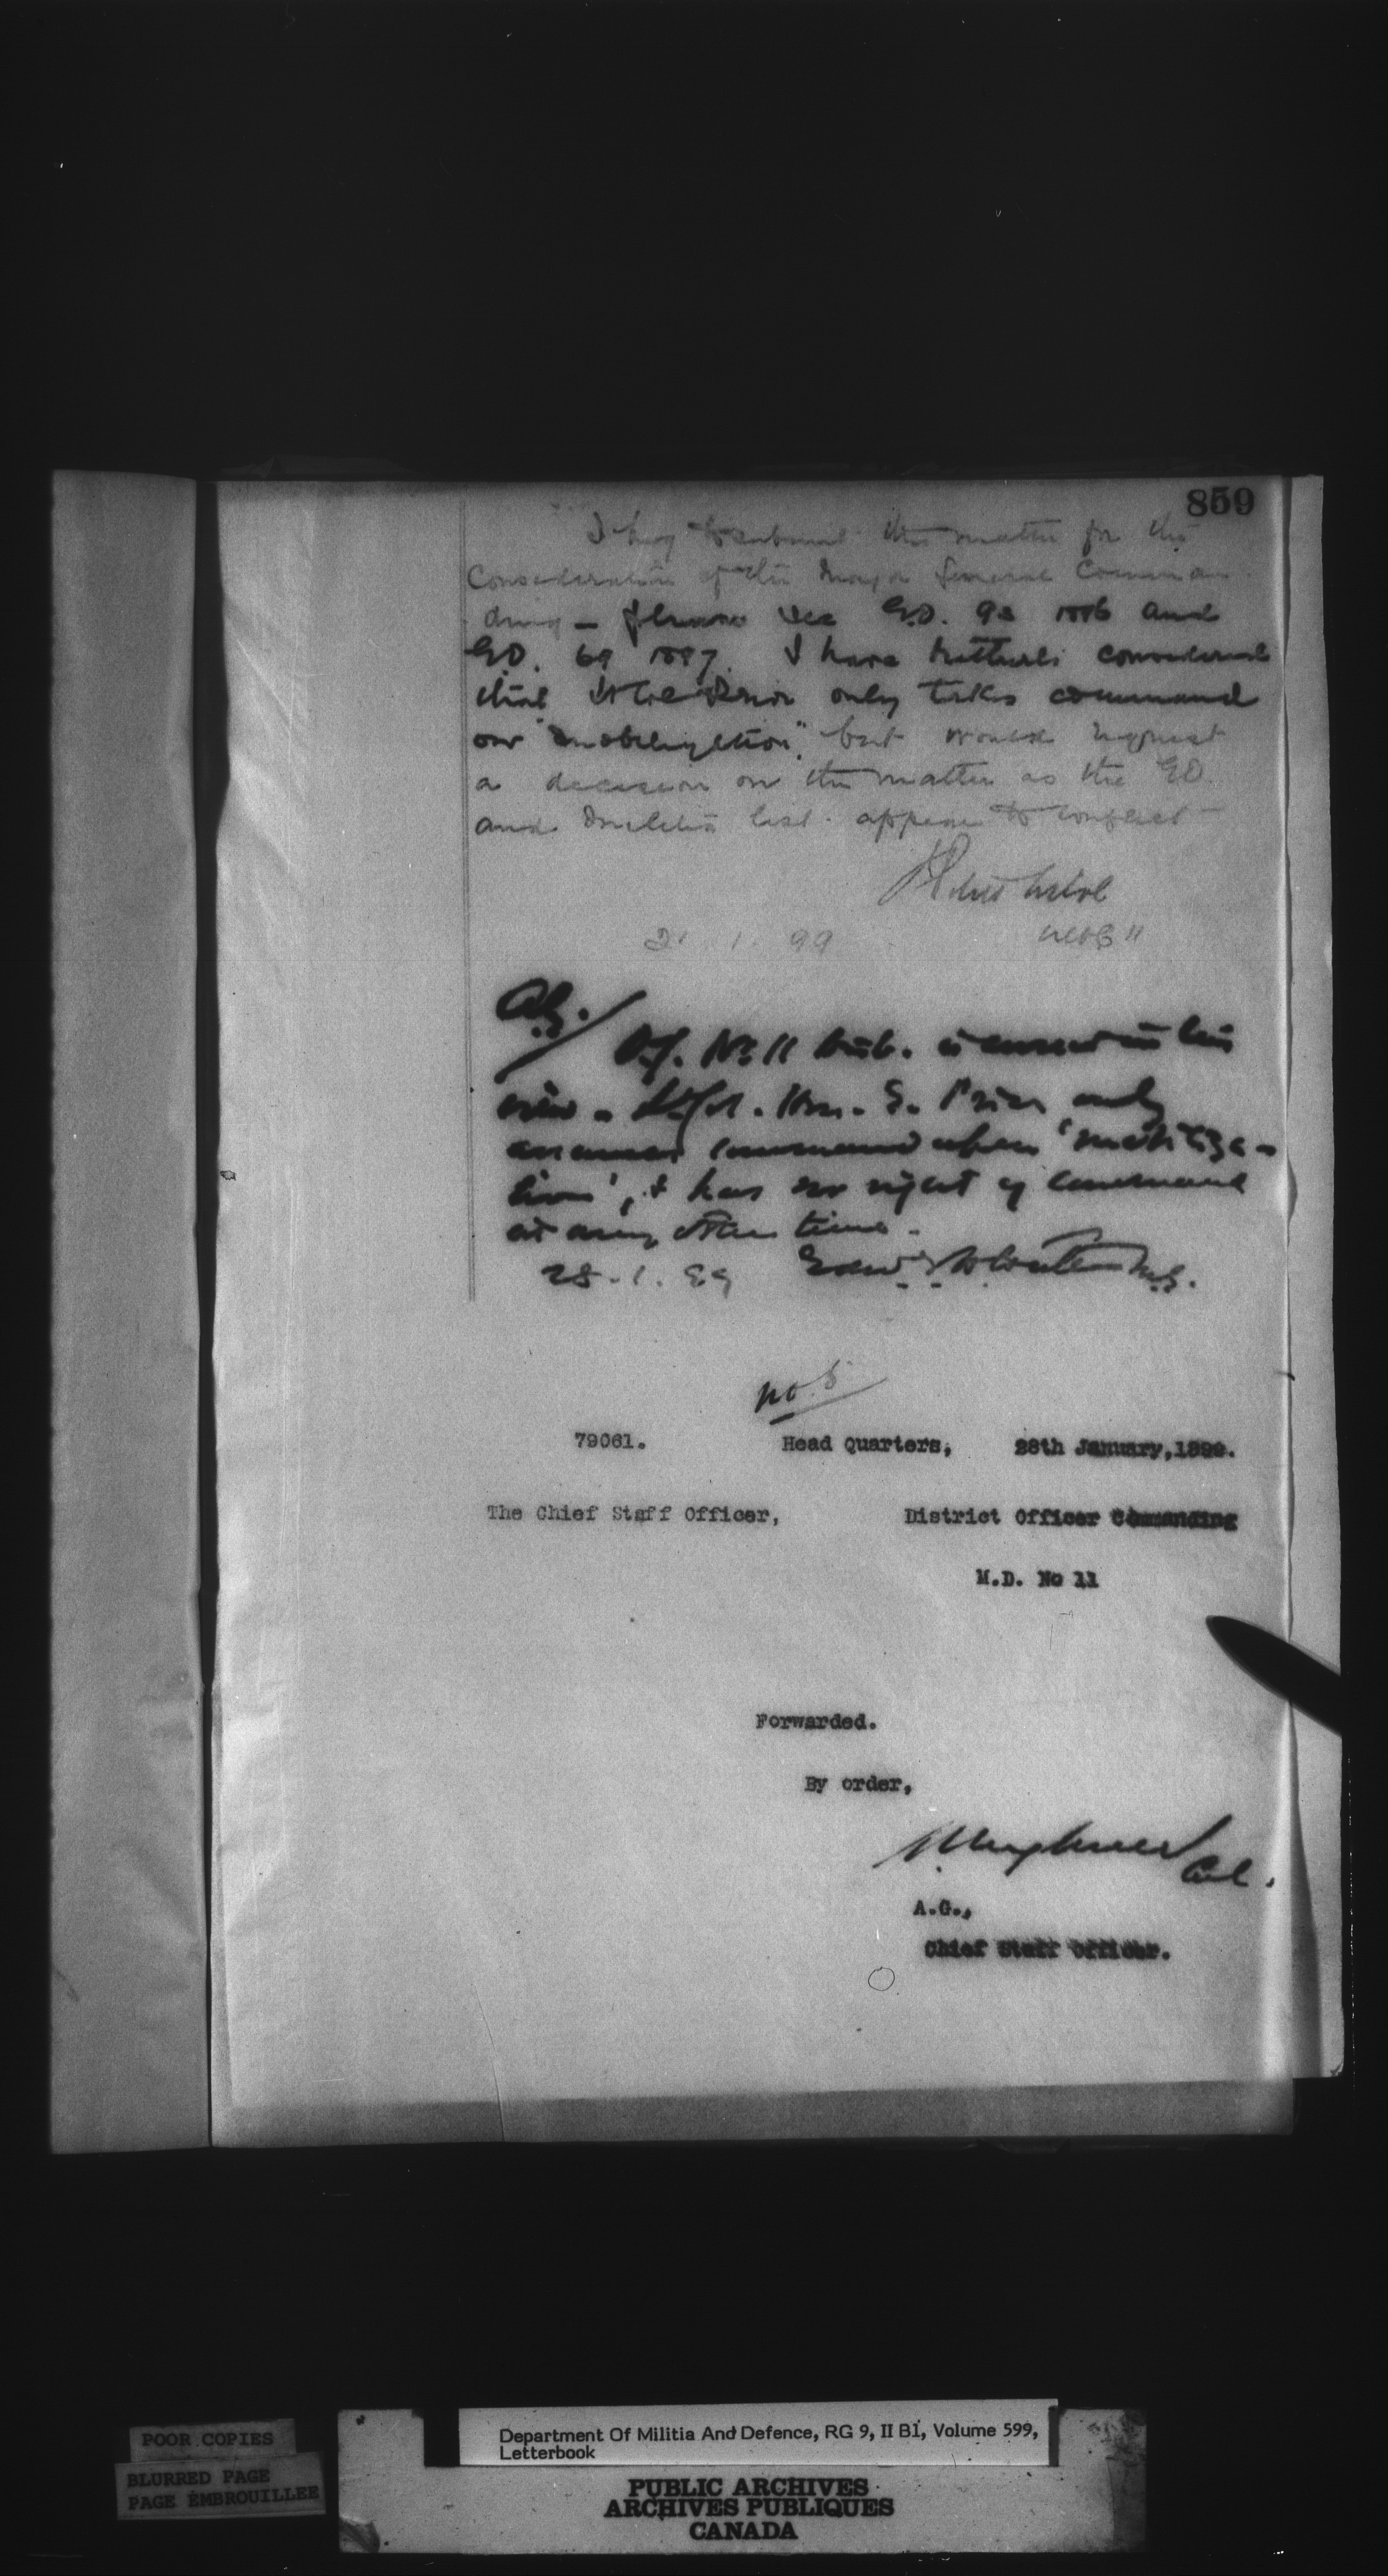 859
I beg to submit this matter for the
Consideration of the Major General Comman-
ding – please see G.O. 93 1896 and
G.O. 69 1897. I have hitherto considered
that Lt Col Prior only takes command
on "mobilization", but would request
a decision on the matter as the G.O.
and Militia list appear to conflict –
21 1. 99
DOC 11
A.G.
No. 11 Dist. is correct in his
view – Lt. Col. Hon. E. Prior only
assumes command upon 'mobiliza-
tion', & has no right of command
at any other time.
28.1.99
No 5
79061. Head Quarters, 28th January, 1899.
The Chief Staff Officer, District Officer Commanding
M.D. No 11
Forwarded.
By order,
Col.
A.G.,
Chief Staff Officer.
POOR COPIES
BLURRED PAGE
PAGE EMBROUILLEE
Department Of Militia And Defence, RG 9, II B1, Volume 599,
Letterbook
PUBLIC ARCHIVES
ARCHIVES PUBLIQUES
CANADA